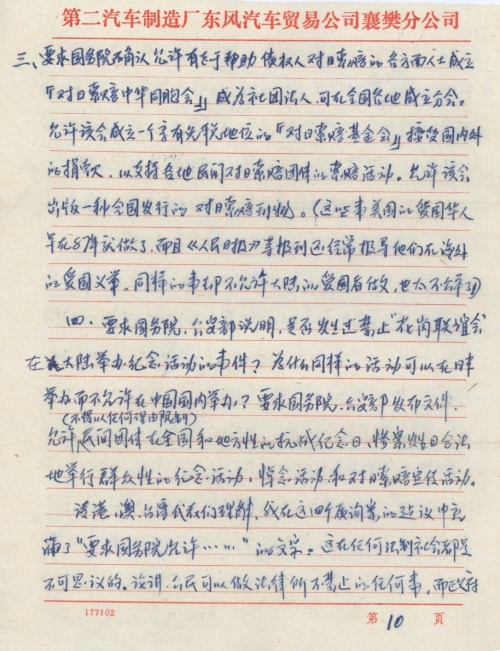 第二汽车制造厂东风汽车贸易公司襄樊分公司
三、要求国务院确认允许有志于帮助债权人对日索赔的各方面人士成立
『对日索赔中华同胞会』成为社团法人,可在全国各地成立分会。
允许该会成立一个享有免税地位的『对日索赔基金会』接受国内外
的捐款,以支持各地民间对日索赔团体的索赔活动。允许该会
出版一种全国发行的对日索赔刊物。(这些事美国的爱国华人
早在87年就做了,而且《人民日报》等报刊还经常报导他们在海外
的爱国义举。同样的事却不允许大陆的爱国者做,也太不公平了)
四、要求国务院、公安部说明,是否发生过禁止“花岗联谊会”
在大陆举办纪念活动的事件?为什么同样的活动可以在日本
举办而不允许在中国国内举办?要求国务院、公安部发布文件,
(不得以任何理由限制)
允许民间团体在全国和地方性的抗战纪念日、惨案发生日合法
地举行群众性的纪念活动、悼念活动和对日索赔宣传活动。
请港、澳、台湾代表们理解,我在这四个质询案的建议中充
满了“要求国务院允许……”的文字。这在任何法制社会都是
不可思议的。论讲,公民可以做法律所不禁止的任何事,而政府
177102
第 10 页